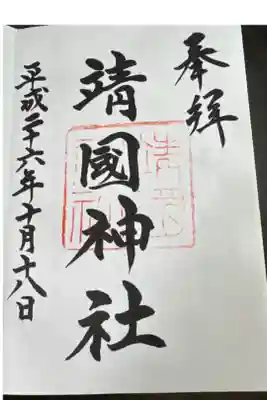 奉拝
靖國神社
平成二十六年十月十八日